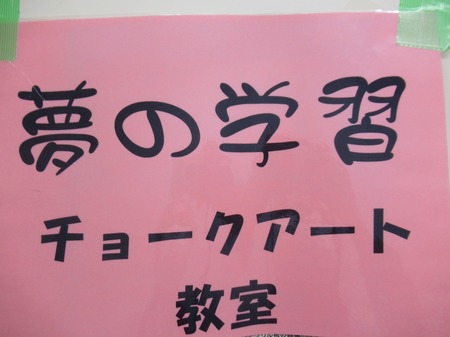 夢の学習
チョークアート
教室